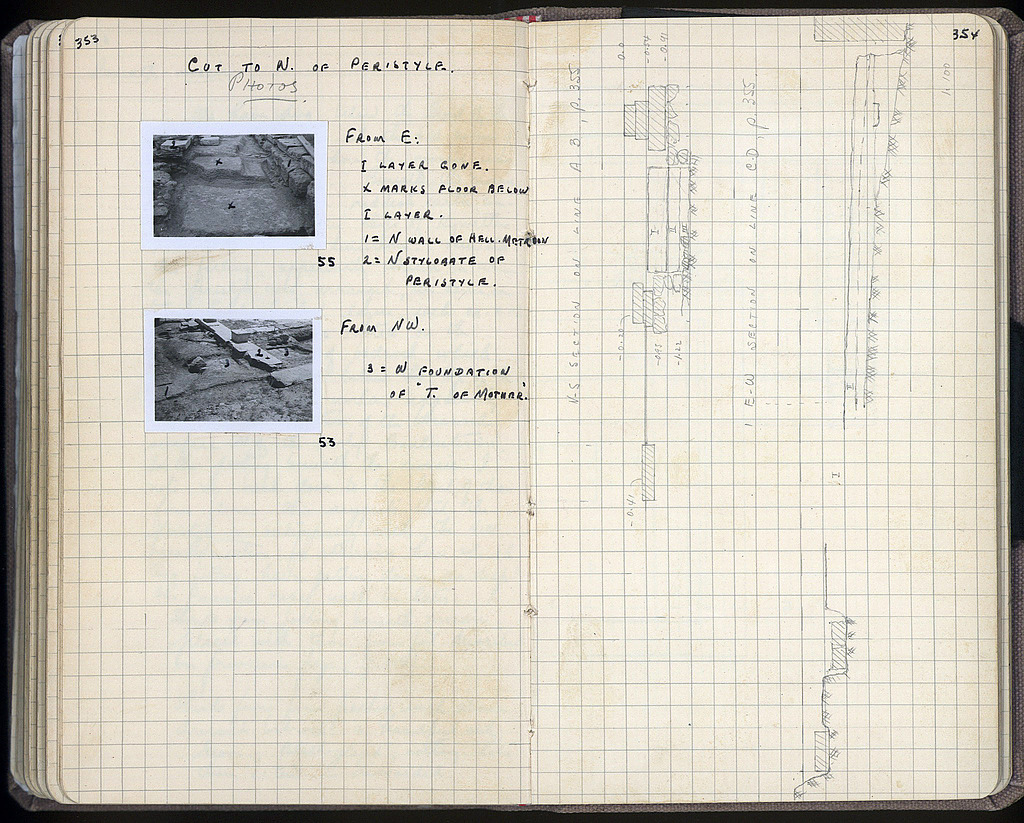 353
CUT TO N. OF PERISTYLE.
PHOTOS
FROM E:
I LAYER GONE.
X MARKS FLOOR BELOW
I LAYER.
1 = N WALL OF HELL. METROON
2 = N STYLOBATE OF
PERISTYLE.
55
FROM NW.
3 = N FOUNDATION
OF "T. OF MOTHER."
53
354
1:100
N-S SECTION ON LINE A B, P. 355
0.0
-0.54
-0.91
I
II
-0.20
-0.95
-1.22
-0.41
E-W SECTION ON LINE C-D, P 355
II
I